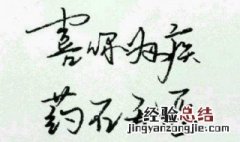 喜你为疾
药石无医
经验总结
jingyanzongjie.com